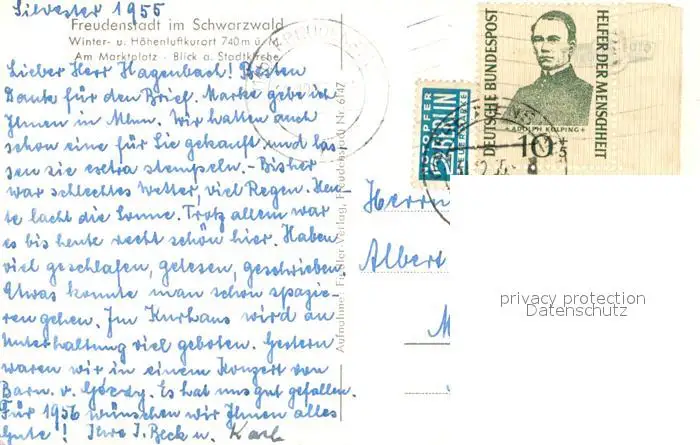 Silvester 1955
Freudenstadt im Schwarzwald
Winter- u. Höhenluftkurort 740 m ü. M.
Am Marktplatz - Blick a. Stadtkirche
Lieber Herr Hagenbach! Besten
Dank für den Brief. Marke gebe ich
Ihnen in Mhm. Wir hatten auch
schon eine für Sie gekauft und las-
sen sie extra stempeln. - Bisher
war schlechtes Wetter, viel Regen. Heu-
te lacht die Sonne. Trotz allem war
es bis heute recht schön hier. Haben
viel geschlafen, gelesen, geschrieben
Etwas konnte man schon spazie-
ren gehen. Im Kurhaus wird an
Unterhaltung viel geboten. Gestern
waren wir in einem Konzert von
Barn. v. Géczy. Es hat uns gut gefallen.
Für 1956 wünschen wir Ihnen alles
Gute! Ihre I. Beck u. Karl
Aufnahme: Fiedler-Verlag, Freudenstadt Nr. 6147
NOTOPFER
2 BERLIN
STEUERMARKE
DEUTSCHE BUNDESPOST
HELFER DER MENSCHHEIT
+ ADOLPH KOLPING +
10+5
Herrn
Albert
M
privacy protection
Datenschutz